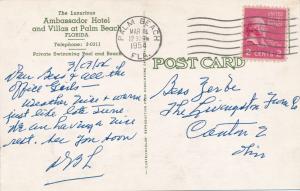 The Luxurious
Ambassador Hotel
and Villas at Palm Beach
FLORIDA
Telephone: 3-0211
Private Swimming Pool and Beach
3/17/54
Dear Bess & all the
Office Girls—
Weather nice & warm
just like late June.
We are having a nice
rest. See you soon
PALM BEACH
MAR
12 PM
1954
FLA.
POST CARD
Bess Zerbe
The Livingston Furn Co
Canton 2
Ill